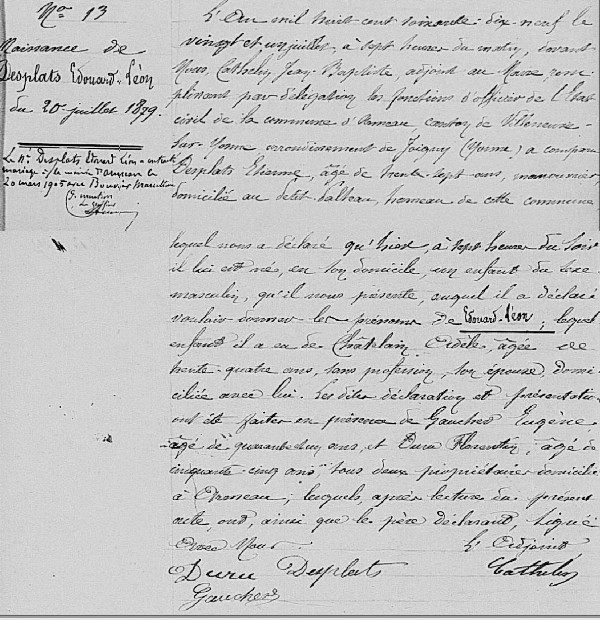 No 13
Naissance de
Desplats Edouard-Léon
du 20 juillet 1879.
Le Né Desplats Edouard Léon a contracté
mariage à la mairie d'Armeau le
20 mars 1905 avec Bouvier
L'An mil huit cent soixante-dix-neuf le
vingt et un juillet, à sept heures du matin, devant
Nous, Cathelin Jean Baptiste, adjoint au Maire, rem-
plissant par délégation les fonctions d'officier de l'Etat
civil de la commune d'Armeau canton de Villeneuve-
sur-Yonne, arrondissement de Joigny (Yonne) a comparu
Desplats Etienne, âgé de trente-sept ans, manouvrier
domicilié au petit-Palteau, hameau de cette commune
lequel nous a déclaré qu'hier, à sept heures du soir
il lui est né, en son domicile, un enfant du sexe
masculin, qu'il nous présente, auquel il a déclaré
vouloir donner les prénoms de Edouard-Léon; lequel
enfant il a eu de Châtelain Adèle, âgée de
trente-quatre ans, sans profession, son épouse, domi-
ciliée avec lui. Les dites déclaration et présentation
ont été faites en présence de Gaucher Eugène
âgé de quarante un ans, et Duru Florentin, âgé de
cinquante-cinq ans tous deux propriétaires domiciliés
à Armeau; lesquels, après lecture du présent
acte, ont, ainsi que le père déclarant, signé
avec Nous. L'Adjoint
Duru Desplats Cathelin
Gaucher